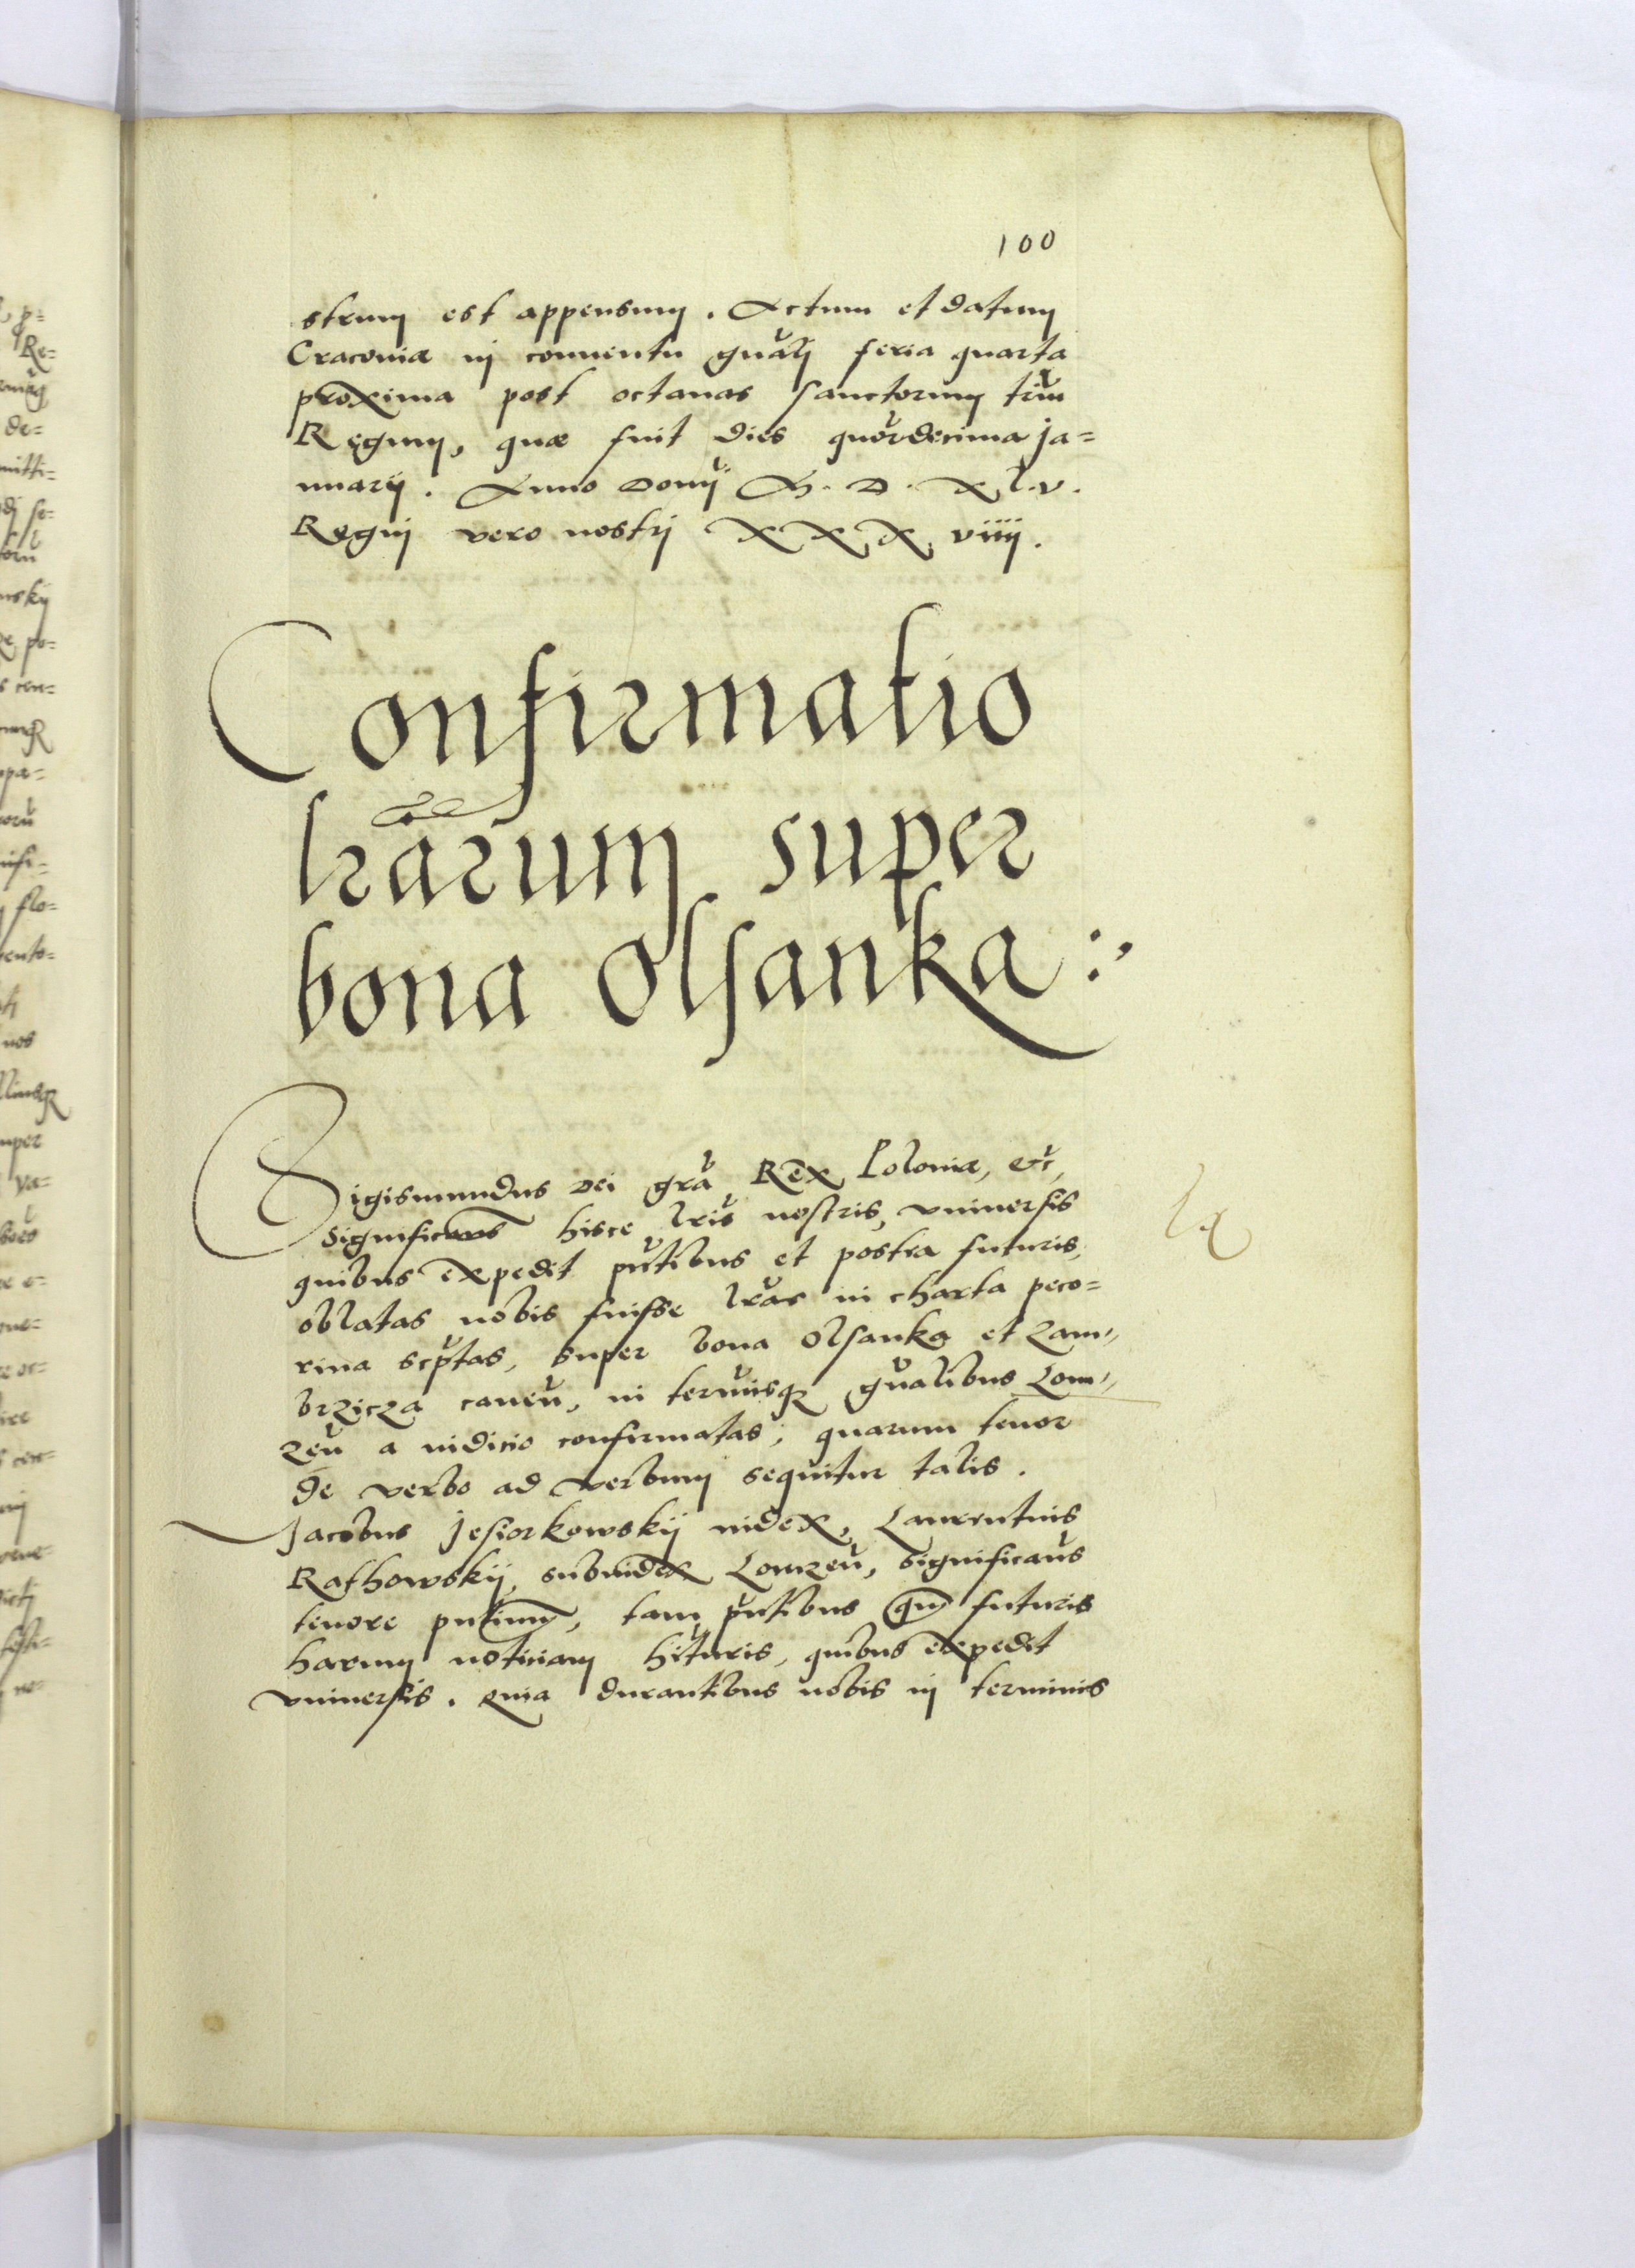 100
strum est appensum. Actum et datum
Cracoviæ in conventu gnali feria quarta
proxima post octavas sanctorum triu
Regum, quæ fuit dies quordecima Ja=
nuarij. Anno Domi M. D. X l. v.
Regni vero nostri X X X viiij.
Confirmatio
lrarum super
bona Olsanka :,
Sigismundus Dei gra Rex Poloniæ, etc,
significamus hisce lris nostris, vniversis
quibus expedit pntibus et postea futuris,
oblatas nobis fuisse lras in charta peco=
rina scptas, super bona Olsanka et Zam,,
brzicza caneu, in terminisq gnalibus Lom,,
zen a iudicio confirmatas, quarum tenor
de verbo ad verbum sequitur talis.
Jacobus Jesiorkowskij iudex, Laurentius
Rakowskij, subiudex Lomzen, significans
tenore pntium, tam pntibus quam futuris
harum noticiam hituris, quibus expedit
vniversis. quia durantibus nobis in terminis